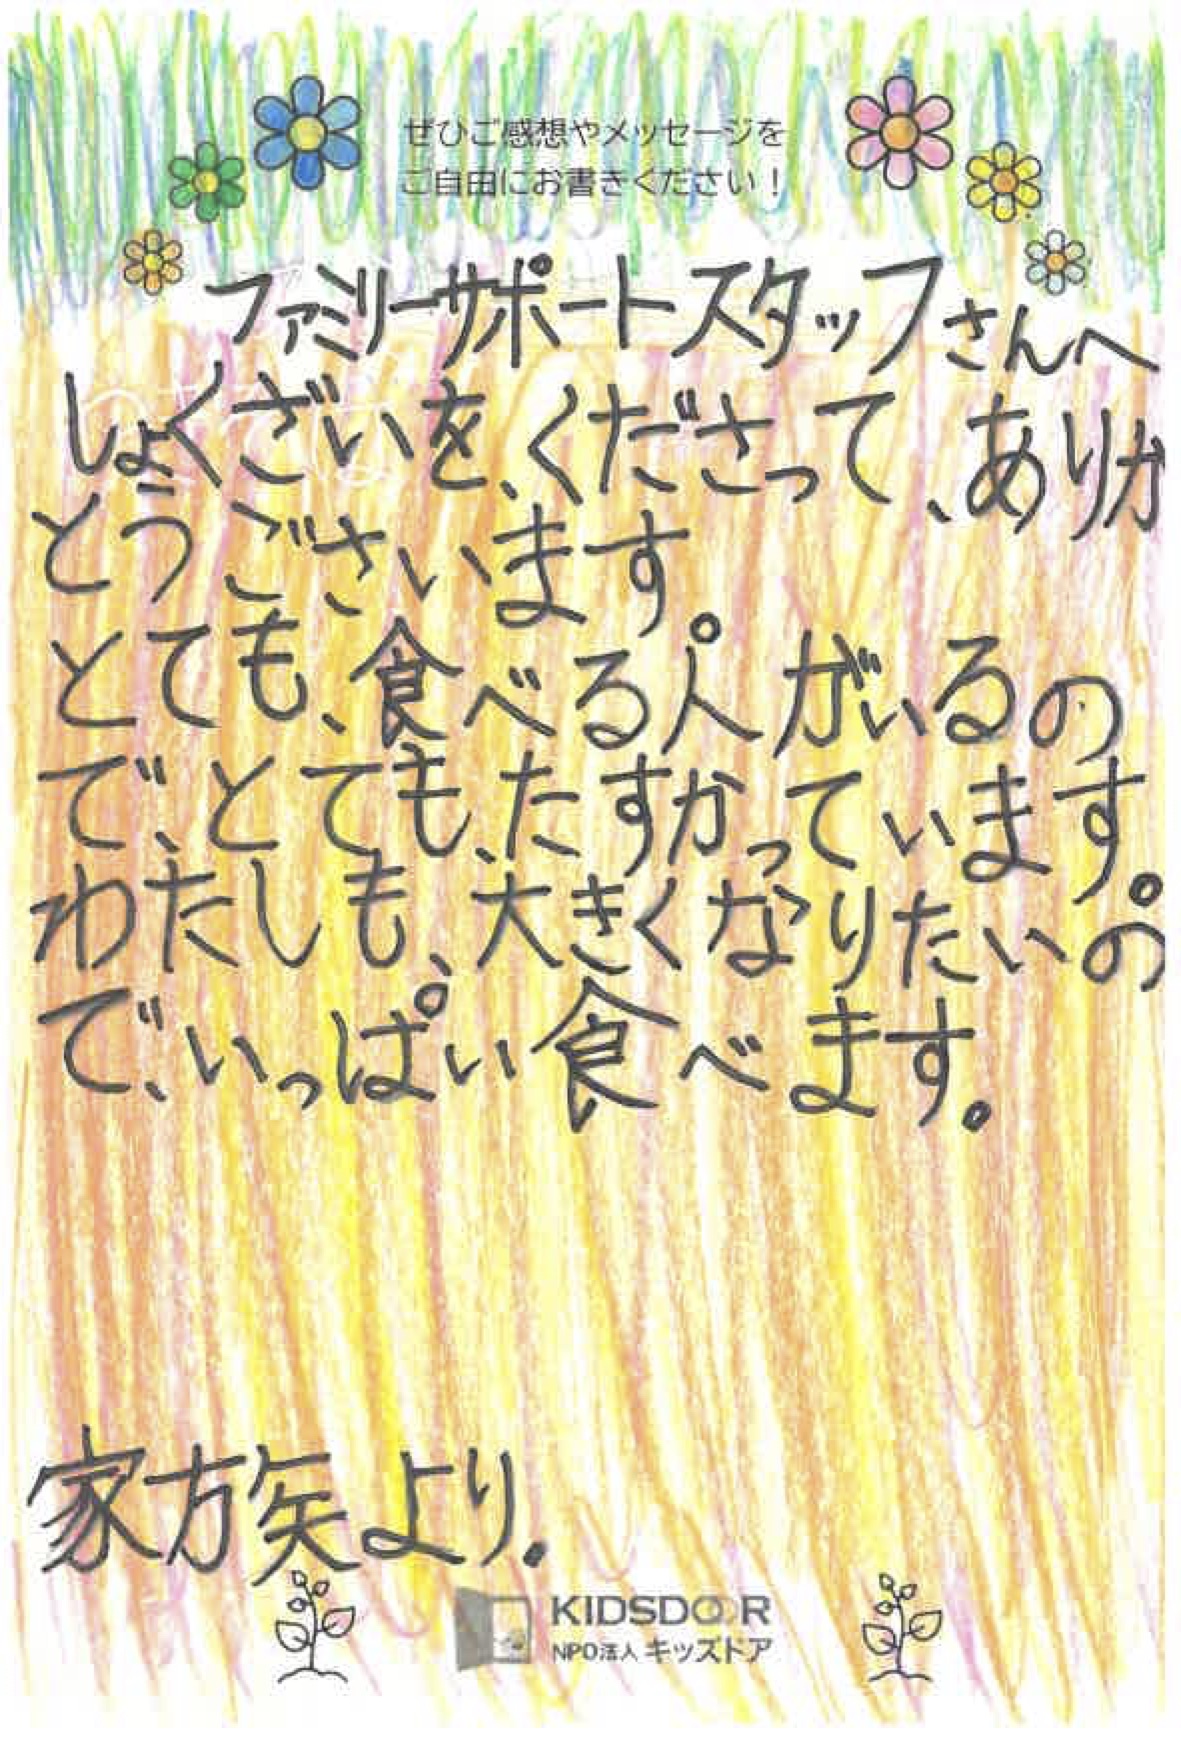 ぜひご感想やメッセージを
ご自由にお書きください！
ファミリーサポートスタッフさんへ
しょくざいを、くださって、ありか
とうごさいます。
とても、食べる人がいるの
で、とても、たすかっています。
わたしも、大きくなりたいの
で、いっぱい食べます。
家方矢より.
KIDSDOOR
NPO法人 キッズドア